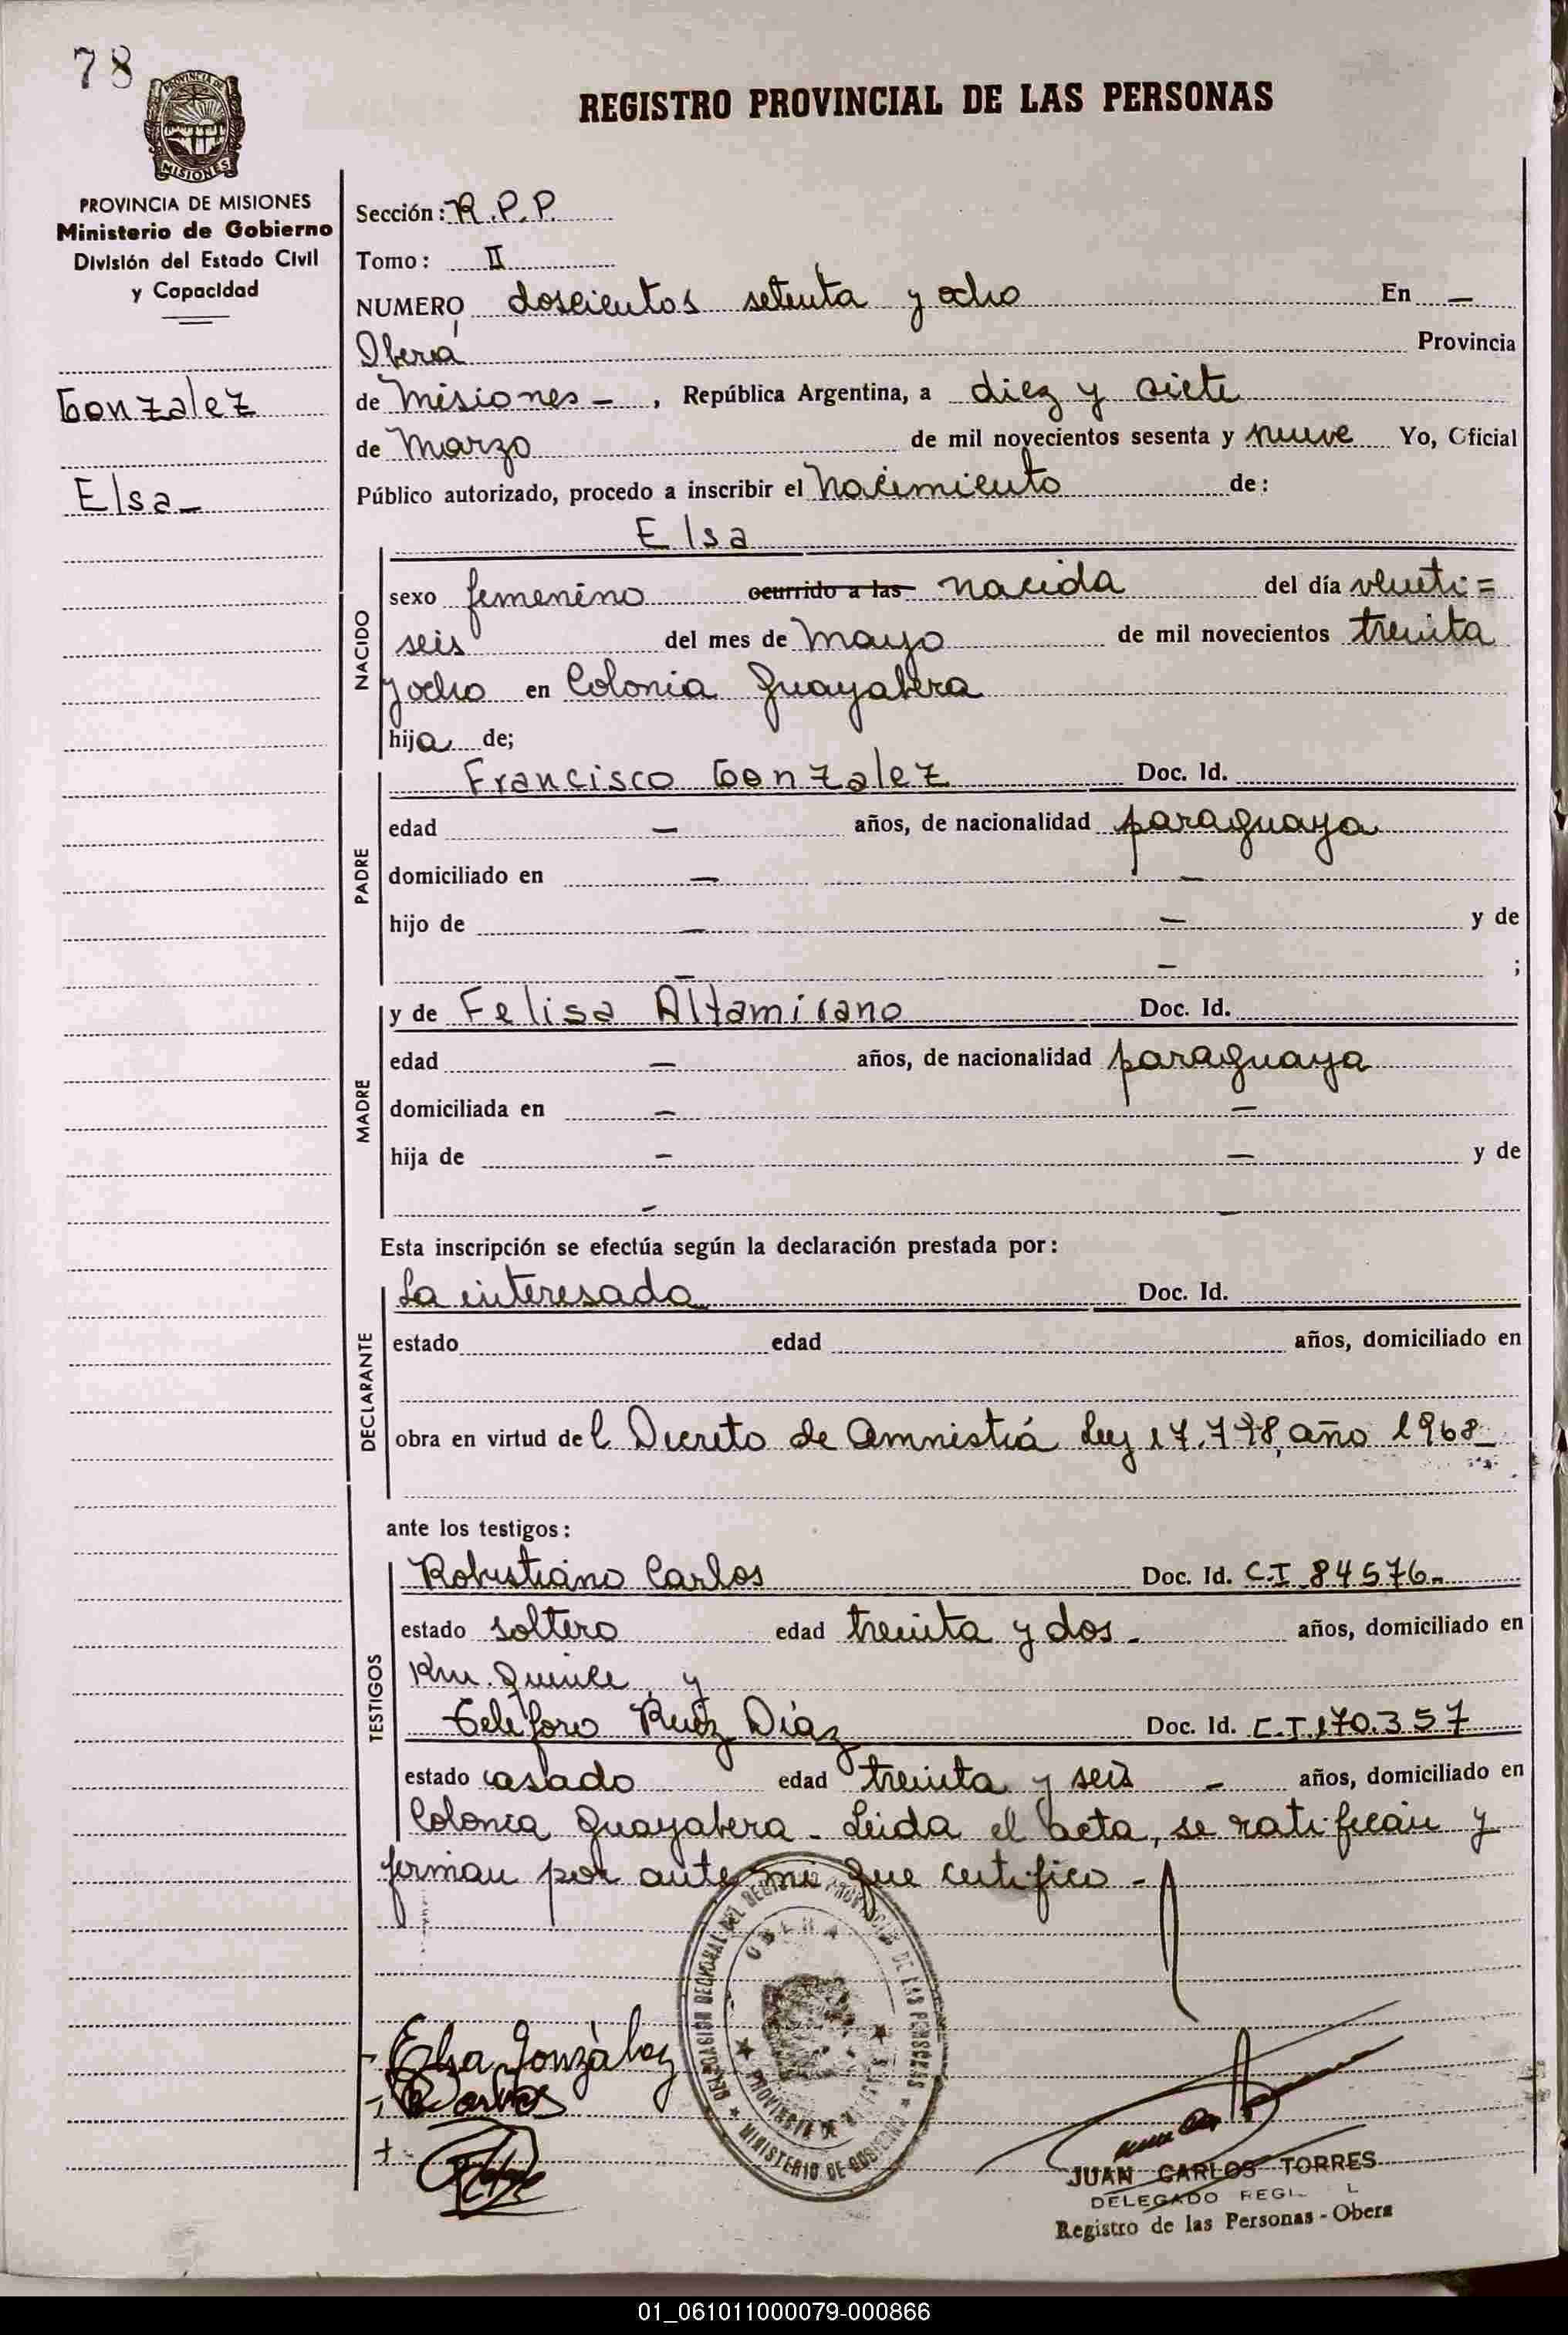 78
PROVINCIA DE
MISIONES
REGISTRO PROVINCIAL DE LAS PERSONAS
PROVINCIA DE MISIONES
Ministerio de Gobierno
División del Estado Civil
y Capacidad
Gonzalez
Elsa_
Sección: R.P.P.
Tomo: II
NUMERO doscientos setenta y ocho En —
Oberá Provincia
de Misiones - , República Argentina, a diez y siete
de Marzo de mil novecientos sesenta y nueve Yo, Oficial
Público autorizado, procedo a inscribir el Nacimiento de:
Elsa
NACIDO
sexo femenino ocurrido a las nacida del día veinti=
seis del mes de Mayo de mil novecientos treinta
y ocho en Colonia Guayabera
hija de;
PADRE
Francisco Gonzalez Doc. Id.
edad — años, de nacionalidad paraguaya
domiciliado en — —
hijo de — — y de
— — ;
MADRE
y de Felisa Altamirano Doc. Id.
edad — años, de nacionalidad paraguaya
domiciliada en — —
hija de — — y de
— —
Esta inscripción se efectúa según la declaración prestada por:
DECLARANTE
La interesada Doc. Id.
estado edad años, domiciliado en
obra en virtud del Decreto de Amnistiá Ley 17.798, año 1968_
ante los testigos:
TESTIGOS
Robustiano Carlos Doc. Id. C.I 84576-
estado soltero edad treinta y dos - años, domiciliado en
Km. quince, y
Teléforo Ruiz Díaz Doc. Id. C.I.170.357
estado casado edad treinta y seis - años, domiciliado en
Colonia Guayabera - Leida el acta, se ratifican y
firman por ante mi que certifico -
DELEGACION REGIONAL DEL REGISTRO PROVINCIAL DE LAS PERSONAS
OBERA
PROVINCIA DE MISIONES
MINISTERIO DE GOBIERNO
Elsa González
R Carlos
JUAN CARLOS TORRES
DELEGADO REGI L
Registro de las Personas - Obera
01_061011000079-000866